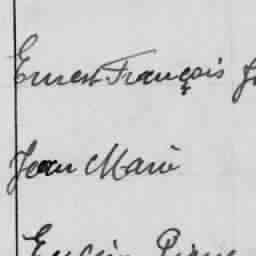 Ernest François
Jean Marie
Eugène Pierre